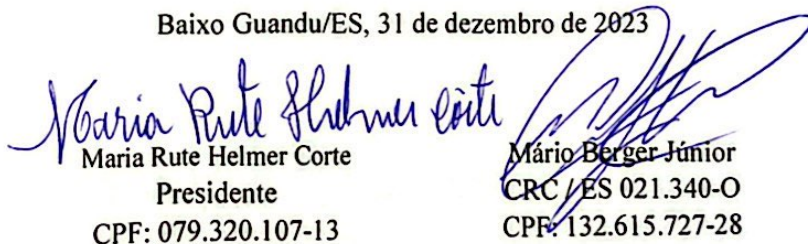 Baixo Guandu/ES, 31 de dezembro de 2023
Maria Rute Helmer Corte
Maria Rute Helmer Corte
Presidente
CPF: 079.320.107-13
Mário Berger Júnior
CRC / ES 021.340-O
CPF: 132.615.727-28